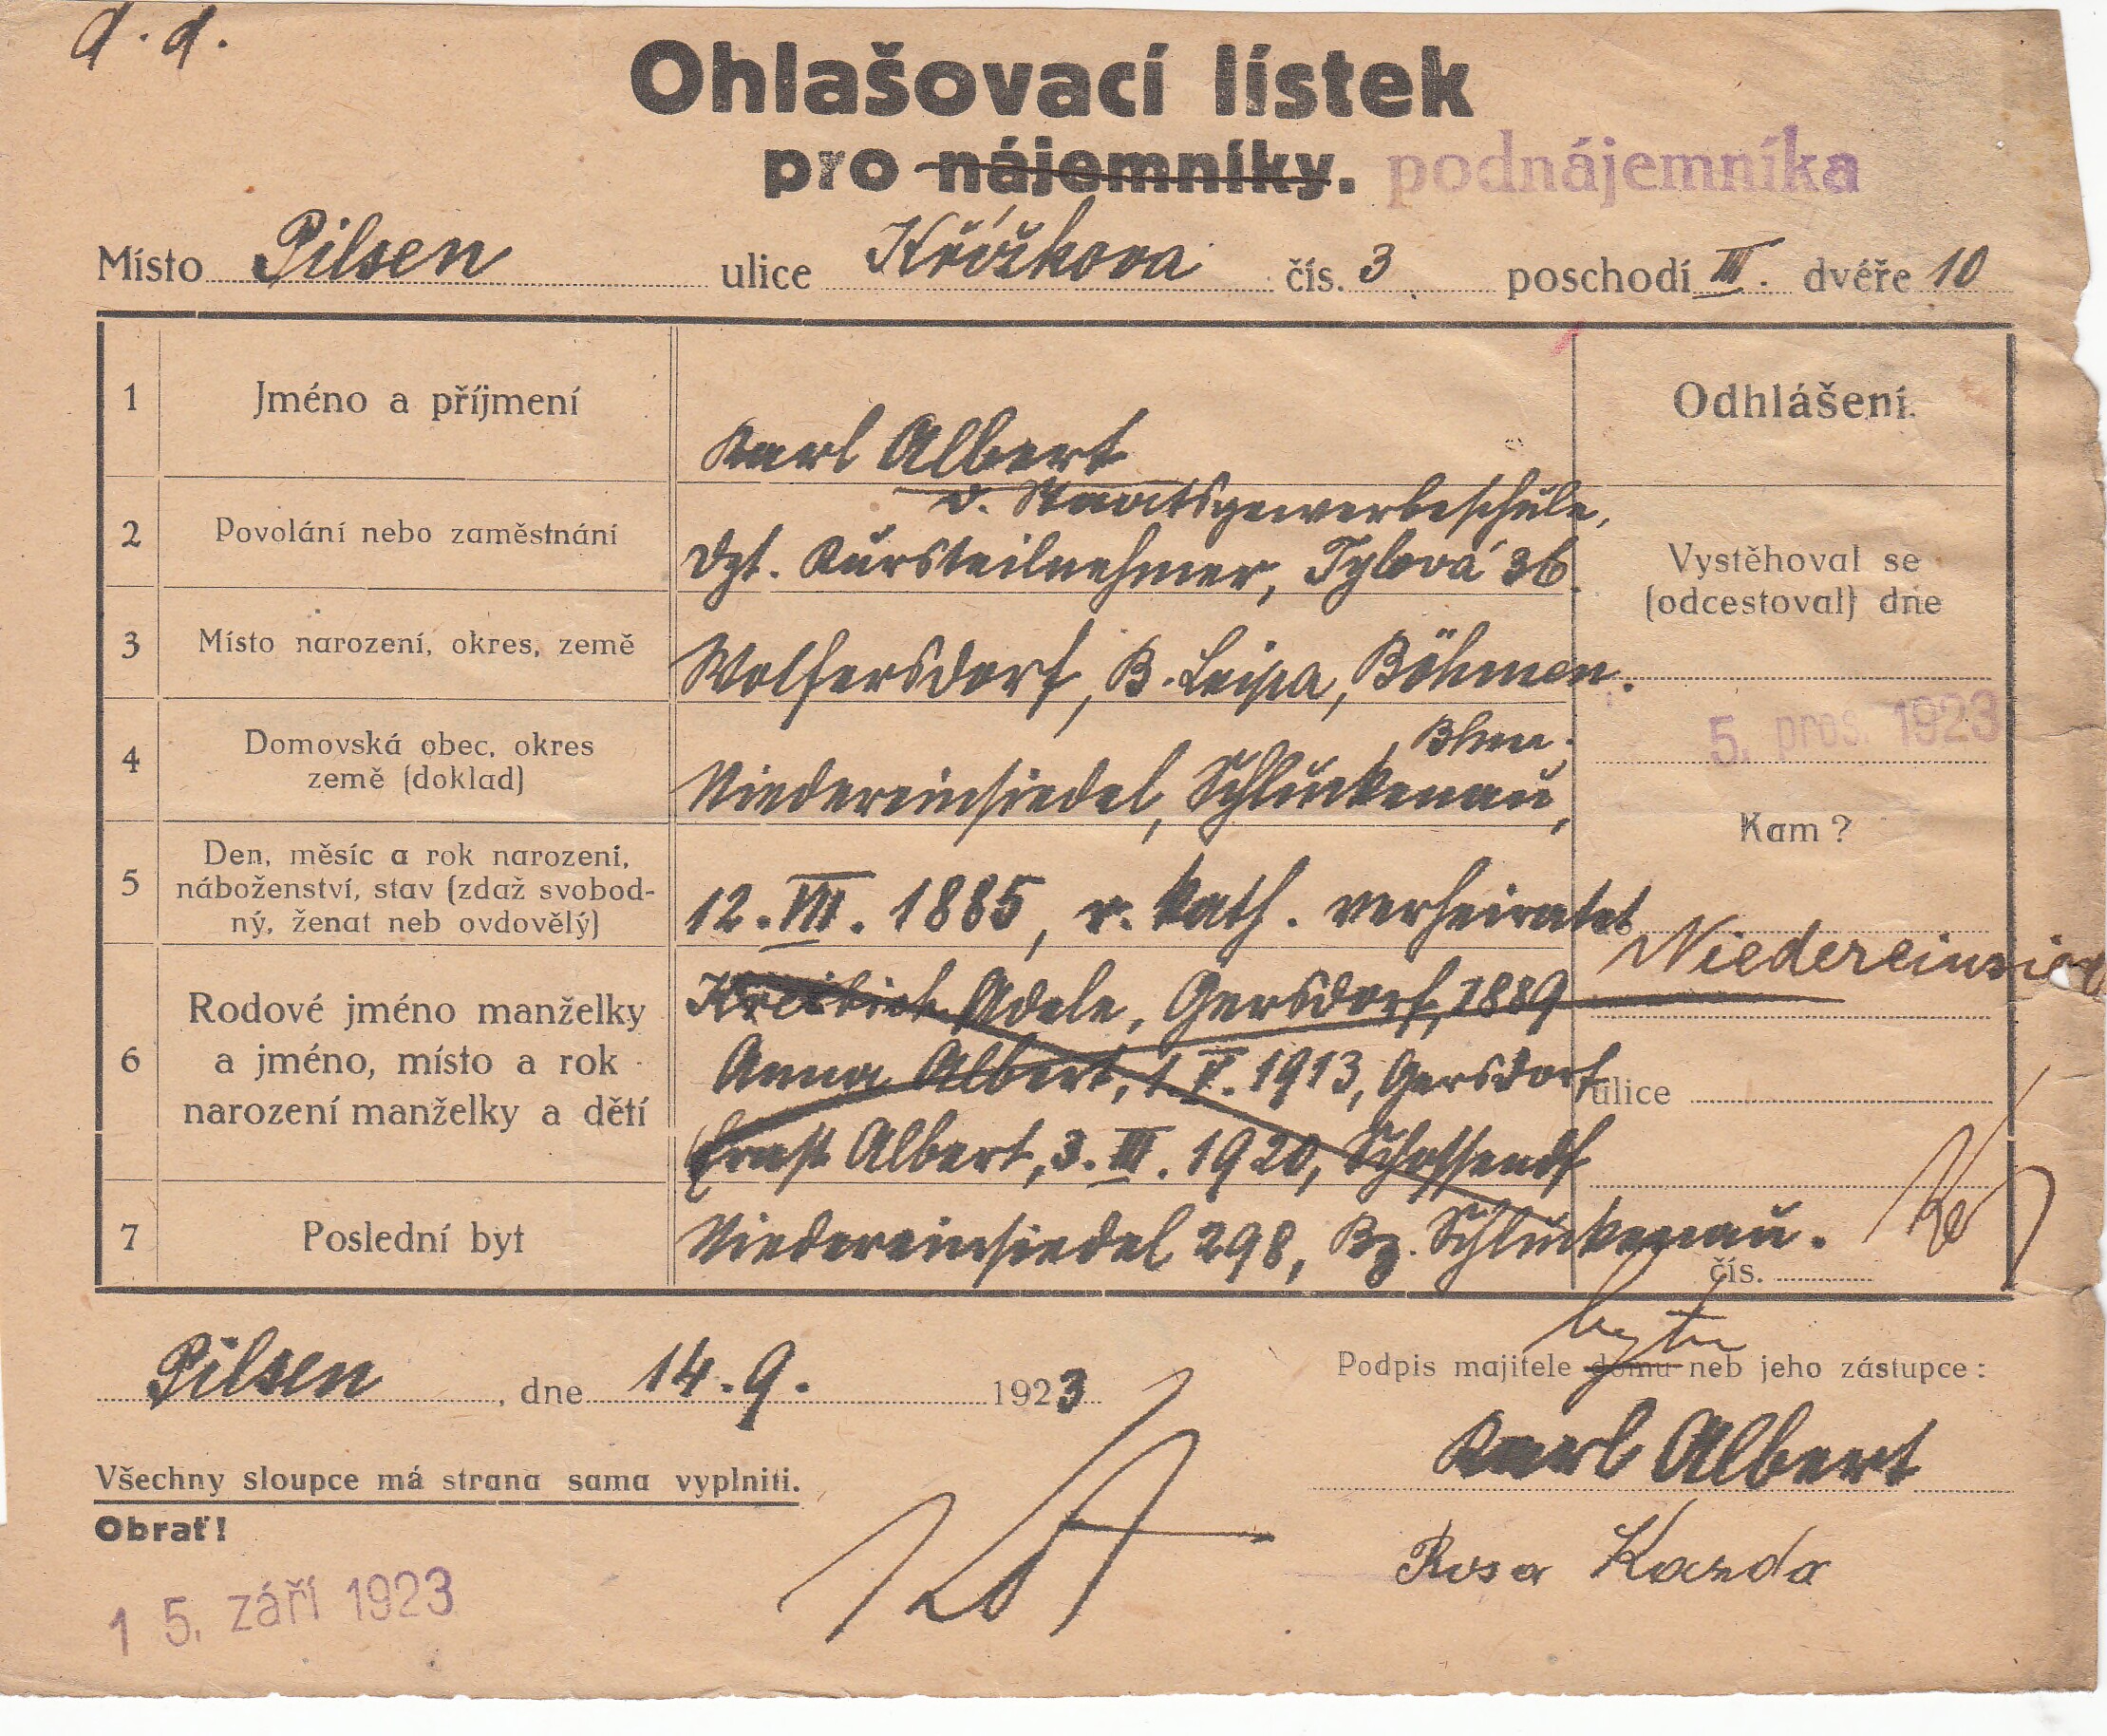 d. d.
Ohlašovací lístek
pro nájemníky. podnájemníka
Místo Pilsen ulice Křížkova čís. 3 poschodí III. dvéře 10
1 Jméno a příjmení Karl Albert
Odhlášení.
2 Povolání nebo zaměstnání
d. Staatsgewerbeschule,
dzt. Kursteilnehmer, Tylová 36.
Vystěhoval se
(odcestoval) dne
3 Místo narození, okres, země Wolfersdorf, B. Leipa, Böhmen.
5. pros. 1923
4 Domovská obec, okres
země (doklad)
, Bhm.
Niedereinsiedel, Schluckenau,
Kam?
5 Den, měsíc a rok narozeni,
náboženství, stav (zdaž svobod-
ný, ženat neb ovdovělý)
12. VIII. 1885, r. kath. verheiratet
Niedereinsied
6 Rodové jméno manželky
a jméno, místo a rok
narození manželky a dětí
Adele, Gersdorf, 1889
Anna Albert, 1. V. 1913, Gersdorf
Ernst Albert, 3. III. 1920,
ulice
7 Poslední byt Niedereinsiedel 298, Bz. Schluckenau.
čís.
Pilsen, dne 14. 9. 1923
bytu
Podpis majitele domu neb jeho zástupce:
Karl Albert
Všechny sloupce má strana sama vyplniti.
Obrať!
Rosa Kazda
15. září 1923